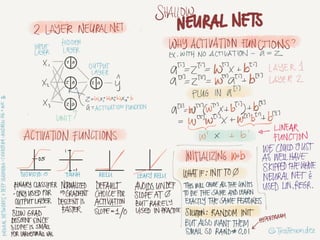 SHALLOW
NEURAL NETS
2 LAYER NEURAL NET
INPUT LAYER
HIDDEN LAYER
OUTPUT LAYER
X₁
X₂
X₃
ŷ
UNIT
a = ACTIVATION FUNCTION
WHY ACTIVATION FUNCTIONS?
EX. WITH NO ACTIVATION - a = z
a[1] = z[1] = W[1]x + b[1] LAYER 1
a[2] = z[2] = W[2]a[1] + b[2] LAYER 2
PLUG IN a[1]
a[2] = W[2](W[1]x + b[1]) + b[2]
W' x + b'
LINEAR FUNCTION
WE COULD JUST
AS WELL HAVE
SKIPPED THE WHOLE
NEURAL NET &
USED LIN. REGR.
ACTIVATION FUNCTIONS
SIGMOID
TANH
RELU
LEAKY RELU
BINARY CLASSIFIER
ONLY USED FOR
OUTPUT LAYER
SLOW GRAD
DESCENT SINCE
SLOPE IS SMALL
FOR LARGE/SMALL VAL
NORMALIZED
⇒ GRADIENT
DESCENT IS
FASTER
DEFAULT
CHOICE FOR
ACTIVATION
SLOPE = 1/0
AVOIDS UNDEF
SLOPE AT 0
BUT RARELY
USED IN PRACTICE
INITIALIZING W+b
WHAT IF: INIT TO 0
THIS WILL CAUSE ALL THE UNITS
TO BE THE SAME AND LEARN
EXACTLY THE SAME FEATURES
SOLUTION: RANDOM INIT
BUT ALSO WANT THEM
SMALL SO RAND * 0.01
@TessFerrandez